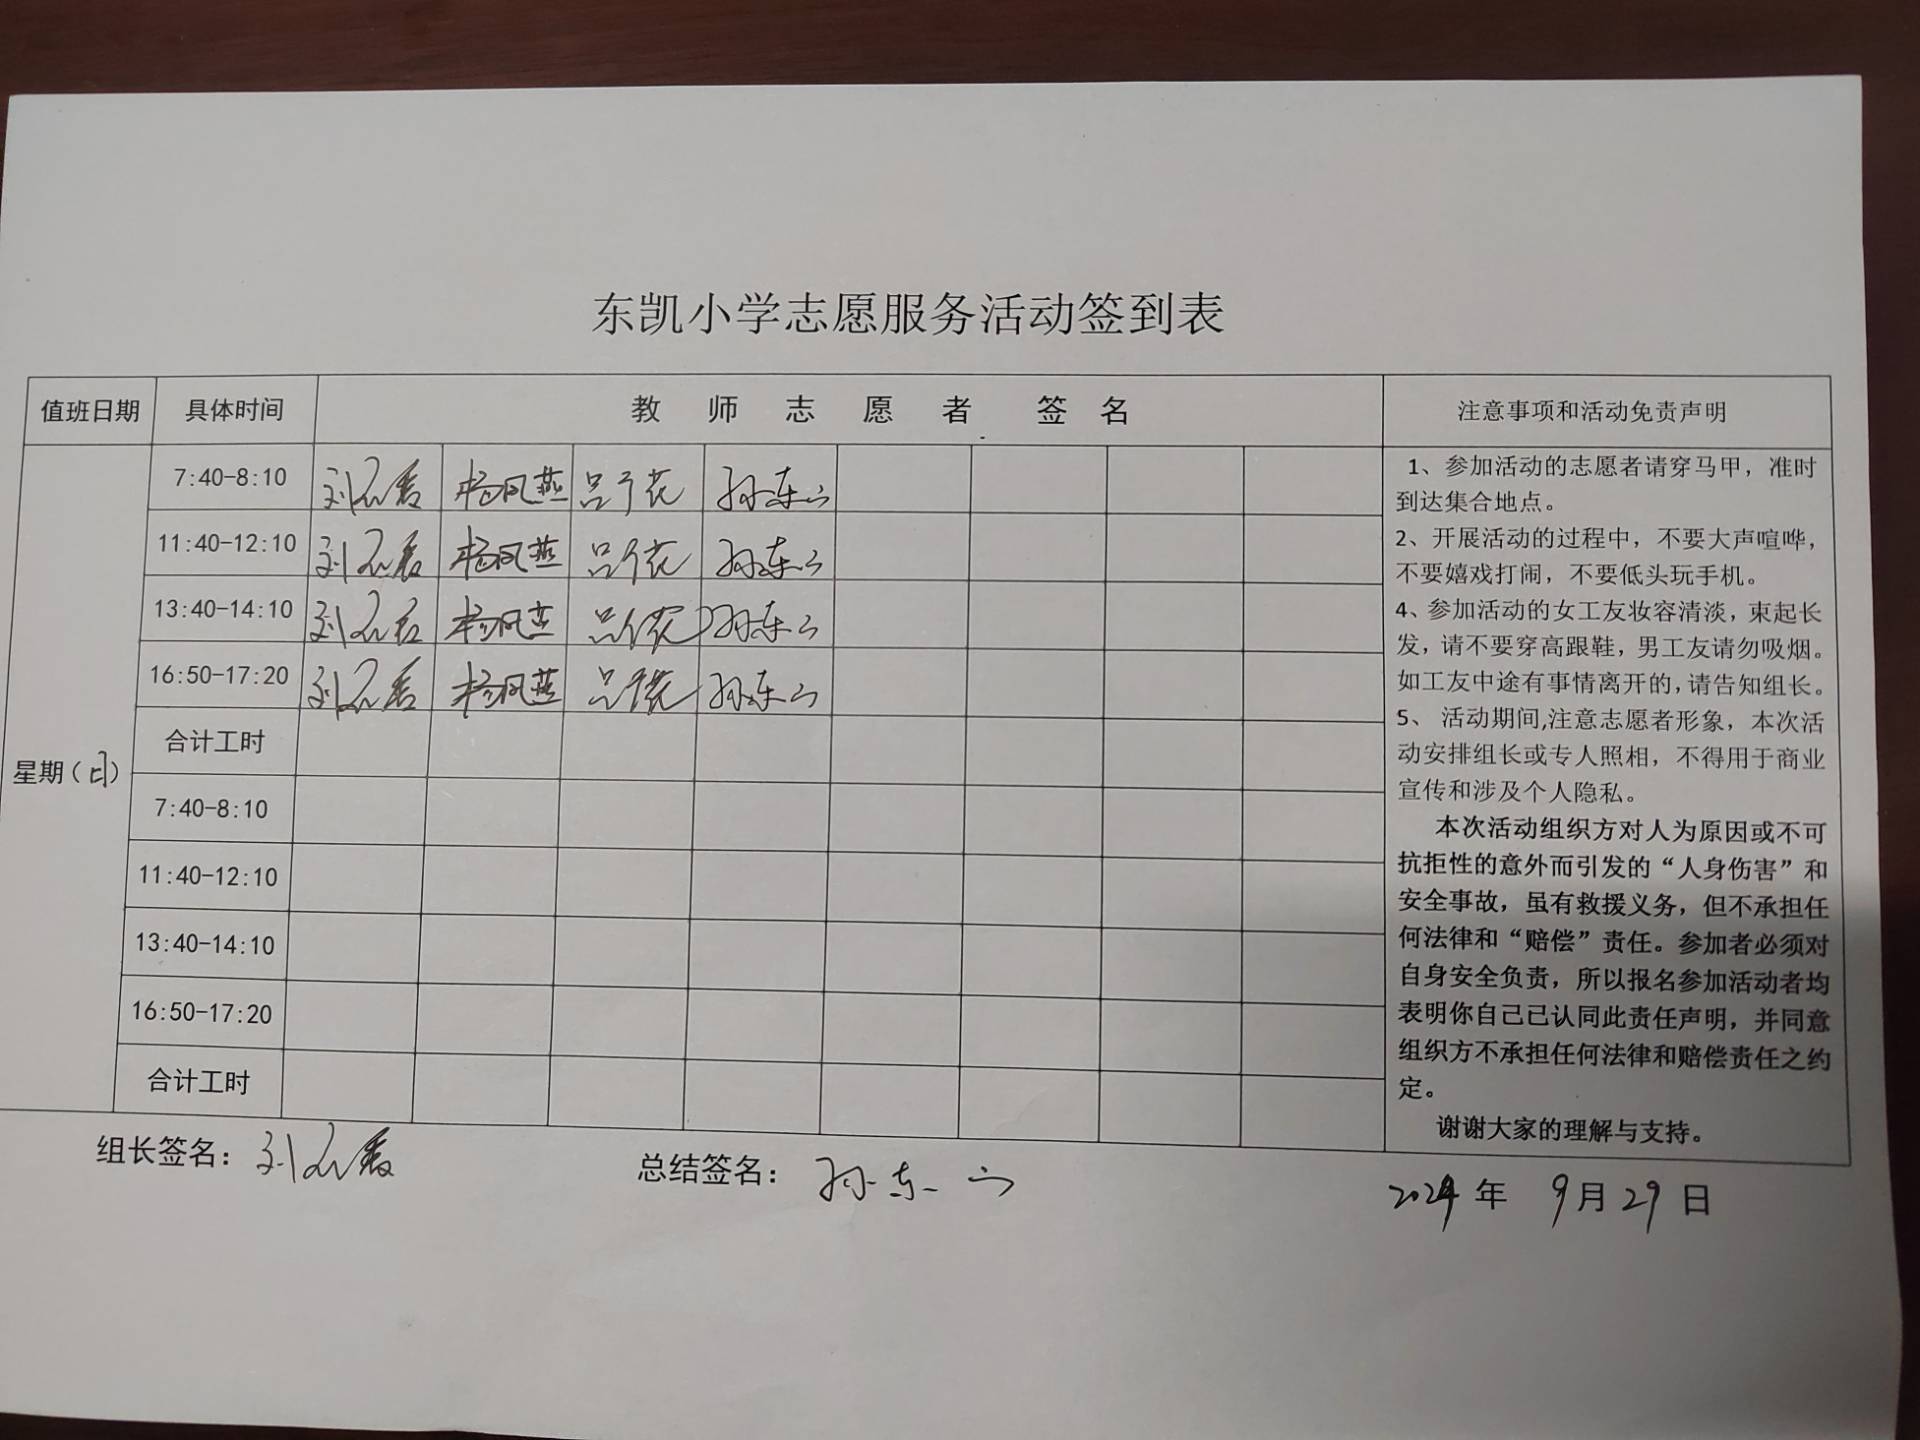 东凯小学志愿服务活动签到表
值班日期 具体时间 教师志愿者签名 注意事项和活动免责声明
星期(日)
7:40-8:10 杨风燕 孙东
11:40-12:10 杨风燕 孙东
13:40-14:10 杨风燕 孙东
16:50-17:20 杨风燕 孙东
合计工时
7:40-8:10
11:40-12:10
13:40-14:10
16:50-17:20
合计工时
1、参加活动的志愿者请穿马甲，准时
到达集合地点。
2、开展活动的过程中，不要大声喧哗，
不要嬉戏打闹，不要低头玩手机。
4、参加活动的女工友妆容清淡，束起长
发，请不要穿高跟鞋，男工友请勿吸烟。
如工友中途有事情离开的，请告知组长。
5、 活动期间,注意志愿者形象，本次活
动安排组长或专人照相，不得用于商业
宣传和涉及个人隐私。
本次活动组织方对人为原因或不可
抗拒性的意外而引发的“人身伤害”和
安全事故，虽有救援义务，但不承担任
何法律和“赔偿”责任。参加者必须对
自身安全负责，所以报名参加活动者均
表明你自己已认同此责任声明，并同意
组织方不承担任何法律和赔偿责任之约
定。
谢谢大家的理解与支持。
组长签名：刘 总结签名：孙东
2024年 9月29日